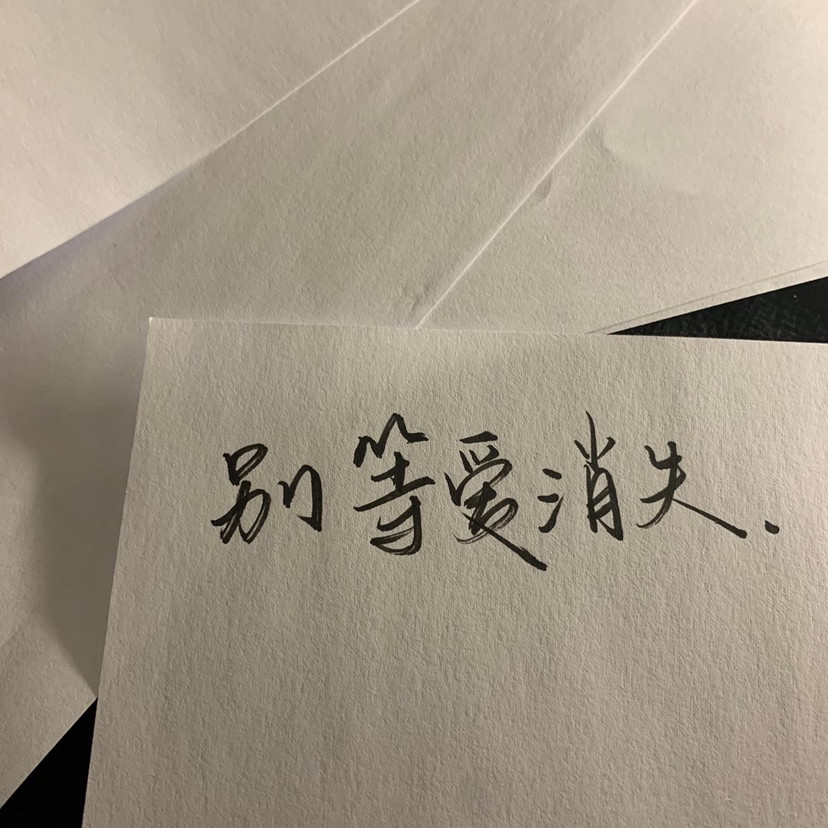 别等爱消失.